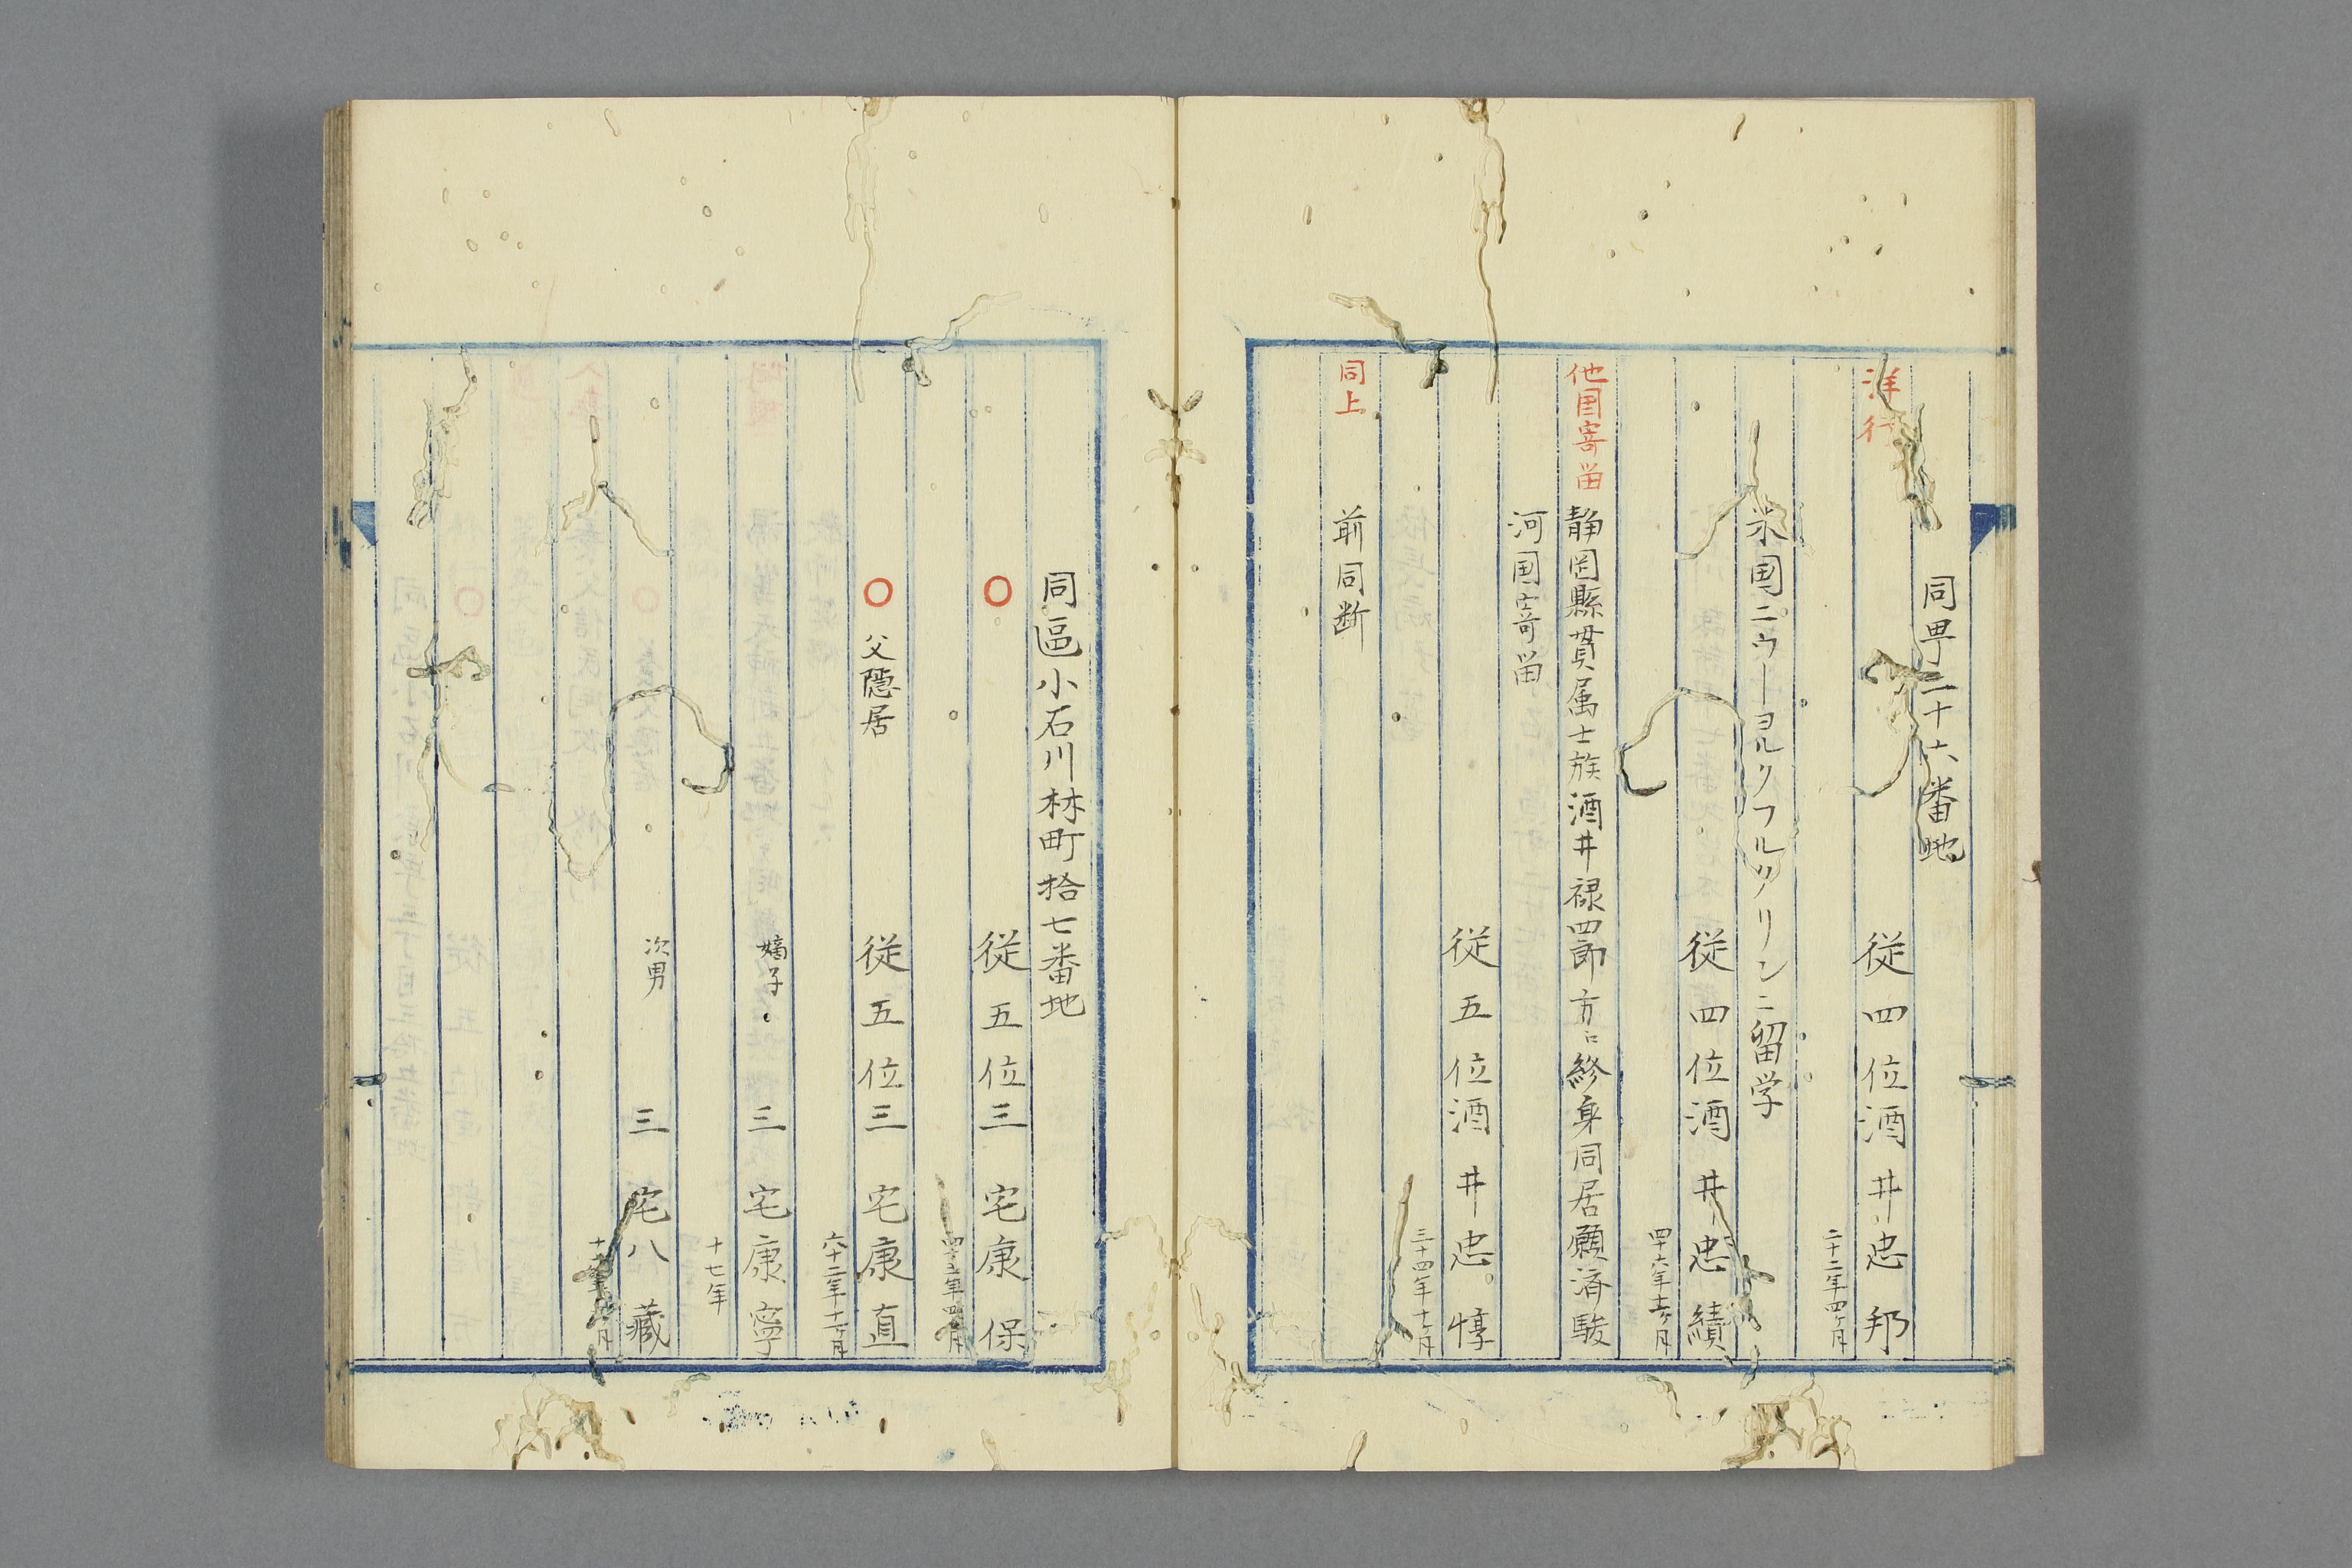 同甼三十六番地
洋行
従四位酒井忠邦
二十二年四ヶ月
米国ニウーヨルクフルツクリンニ留学
従四位酒井忠績
四十六年十ヶ月
他国寄畄 静岡縣貫属士族酒井禄四郎方ニ終身同居願済駿
河国寄畄
従五位酒井忠惇
三十四年十ヶ月
同上 前同断
同區小石川林町拾七番地
〇 従五位三宅康保
〇 父隠居 従五位三宅康直
六十二年十一ヶ月
嫡子 三宅康寧
十七年
次男 三宅八藏